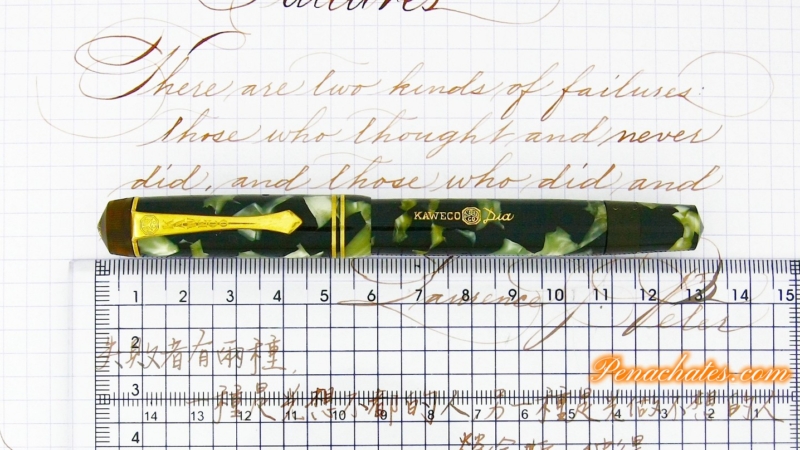 Failures
There are two kinds of failures:
those who thought and never
did, and those who did and
KAWECO Dia
Lawrence J. Peter
1 2 3 4 5 6 7 8 9 10 11 12 13 14 15
失敗者有兩種,
2
Penachates.com
3
一種是光想不
的人 另一種是光做不想的人
14 12 11 10 9 8 7 6 5 4 3 2 1
4